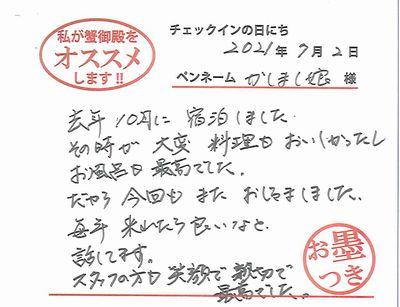 私が蟹御殿を
オススメ
します!!
チェックインの日にち
2021年 7月 2日
ペンネーム かしまし娘 様
去年 10月に 宿泊しました
その時が 大変 料理も おいしかったし
お風呂も 最高でした。
だから 今回も また おじゃましました。
毎年 来れたら良いなと
話してます。
スタッフの方も 笑顔で 親切で
最高でした。
お墨
つき